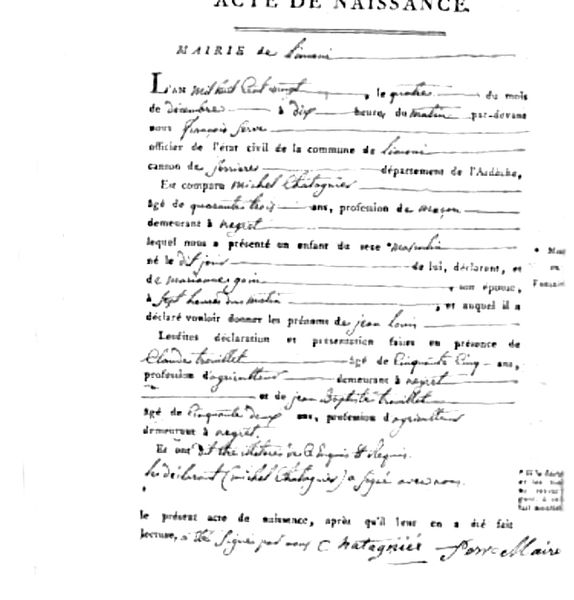 ACTE DE NAISSANCE.
MAIRIE de Limoni
L'AN mil huit Cent vingt, le quatre du mois
de décembre à dix heures du matin par-devant
nous françois Serve
officier de l'état civil de la commune de Limoni
canton de Serrières département de l'Ardèche,
Est comparu michel Chatagnier
âgé de quarante trois ans, profession de maçon
demeurant à negret
lequel nous a présenté un enfant du sexe masculin
né le dit jour de lui, déclarant, et
de marianne goin, son épouse,
à Sept heures du matin, et auquel il a
déclaré vouloir donner les prénoms de jean louis
Lesdites déclaration et présentation faites en présence de
Claude trouillet âgé de Cinquante Cinq ans,
profession d'agriculteur demeurant à negret
et de jean Baptiste trouillet
âgé de Cinquante deux ans, profession d'agriculteur
demeurant à negret.
Et ont dit être de Requis
le déclarant (michel Chatagnier) a signé avec nous.
le présent acte de naissance, après qu'il leur en a été fait
lecture, a été signé par nous Chatagnier Serve Maire